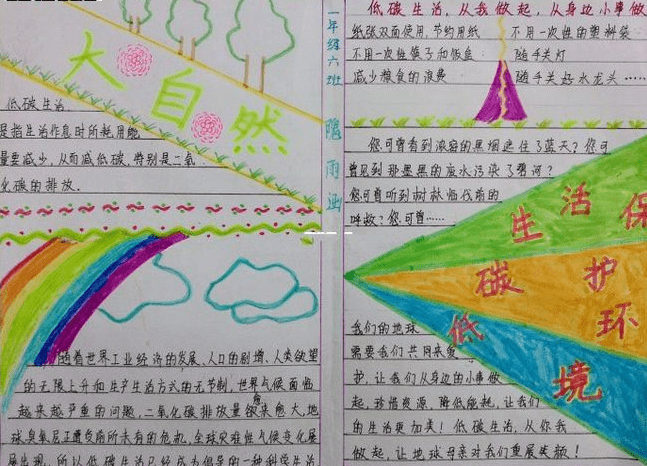 大自然
低碳生活
是指生活作息时所耗用能
量要减少,从而减低碳,特别是二氧
化碳的排放.
随着世界工业经济的发展、人口的剧增、人类欲望
的无限上升和生产生活方式的无节制,世界气候面临
越来越严重的问题,二氧化碳排放量愈来愈大,地
球臭氧层正遭受前所未有的危机,全球灾难性气候变化屡
屡出现,所以低碳生活已经成为倡导的一种科学生活
一年级六班
雨涵
低碳生活,从我做起,从身边小事做
纸张双面使用,节约用纸
不用一次性的塑料袋
不用一次性筷子和饭盒
随手关灯
减少粮食的浪费
随手关好水龙头……
您可曾看到滚滚的黑烟遮住了蓝天?您可
曾见到那墨黑的废水污染了碧河?
您可曾听到树林临伐前的
呼救?您可曾……
低碳生活
保护环境
我们的地球
需要我们共同来爱
护,让我们从身边的小事做
起,珍惜资源,降低能耗,让我们
的生活更加美!低碳生活,从你我
做起,让地球母亲对我们重展笑颜!